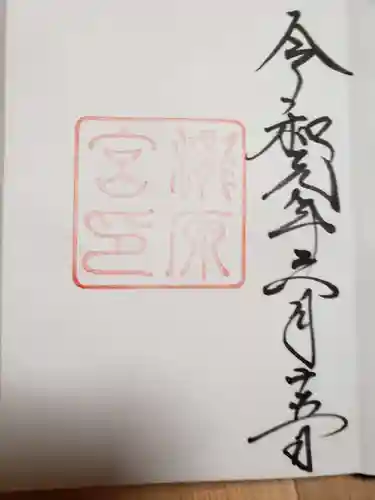 令和元年六月十五日
瀧原
宮印